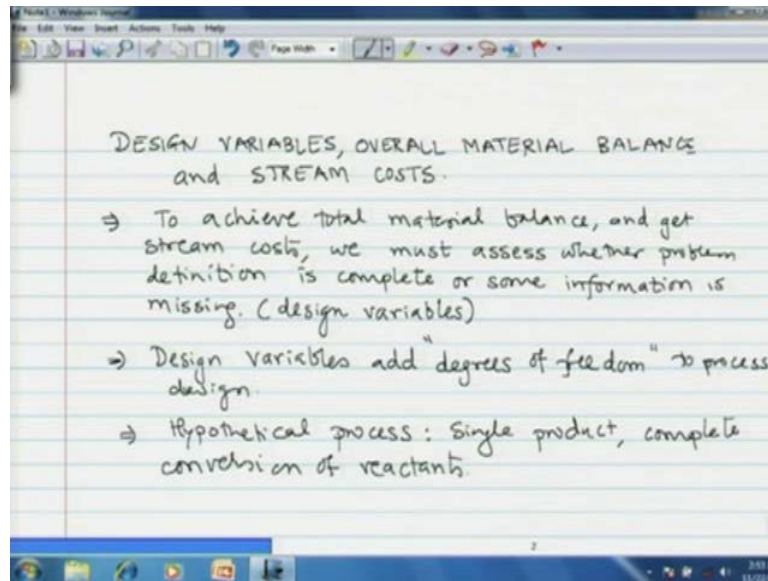 Note1 - Windows Journal
File Edit View Insert Actions Tools Help
Page Width
DESIGN VARIABLES, OVERALL MATERIAL BALANCE
and STREAM COSTS.
⇒ To achieve total material balance, and get
stream costs, we must assess whether problem
definition is complete or some information is
missing. (design variables)
⇒ Design variables add "degrees of freedom" to process
design.
⇒ Hypothetical process : Single product, complete
conversion of reactants.
2